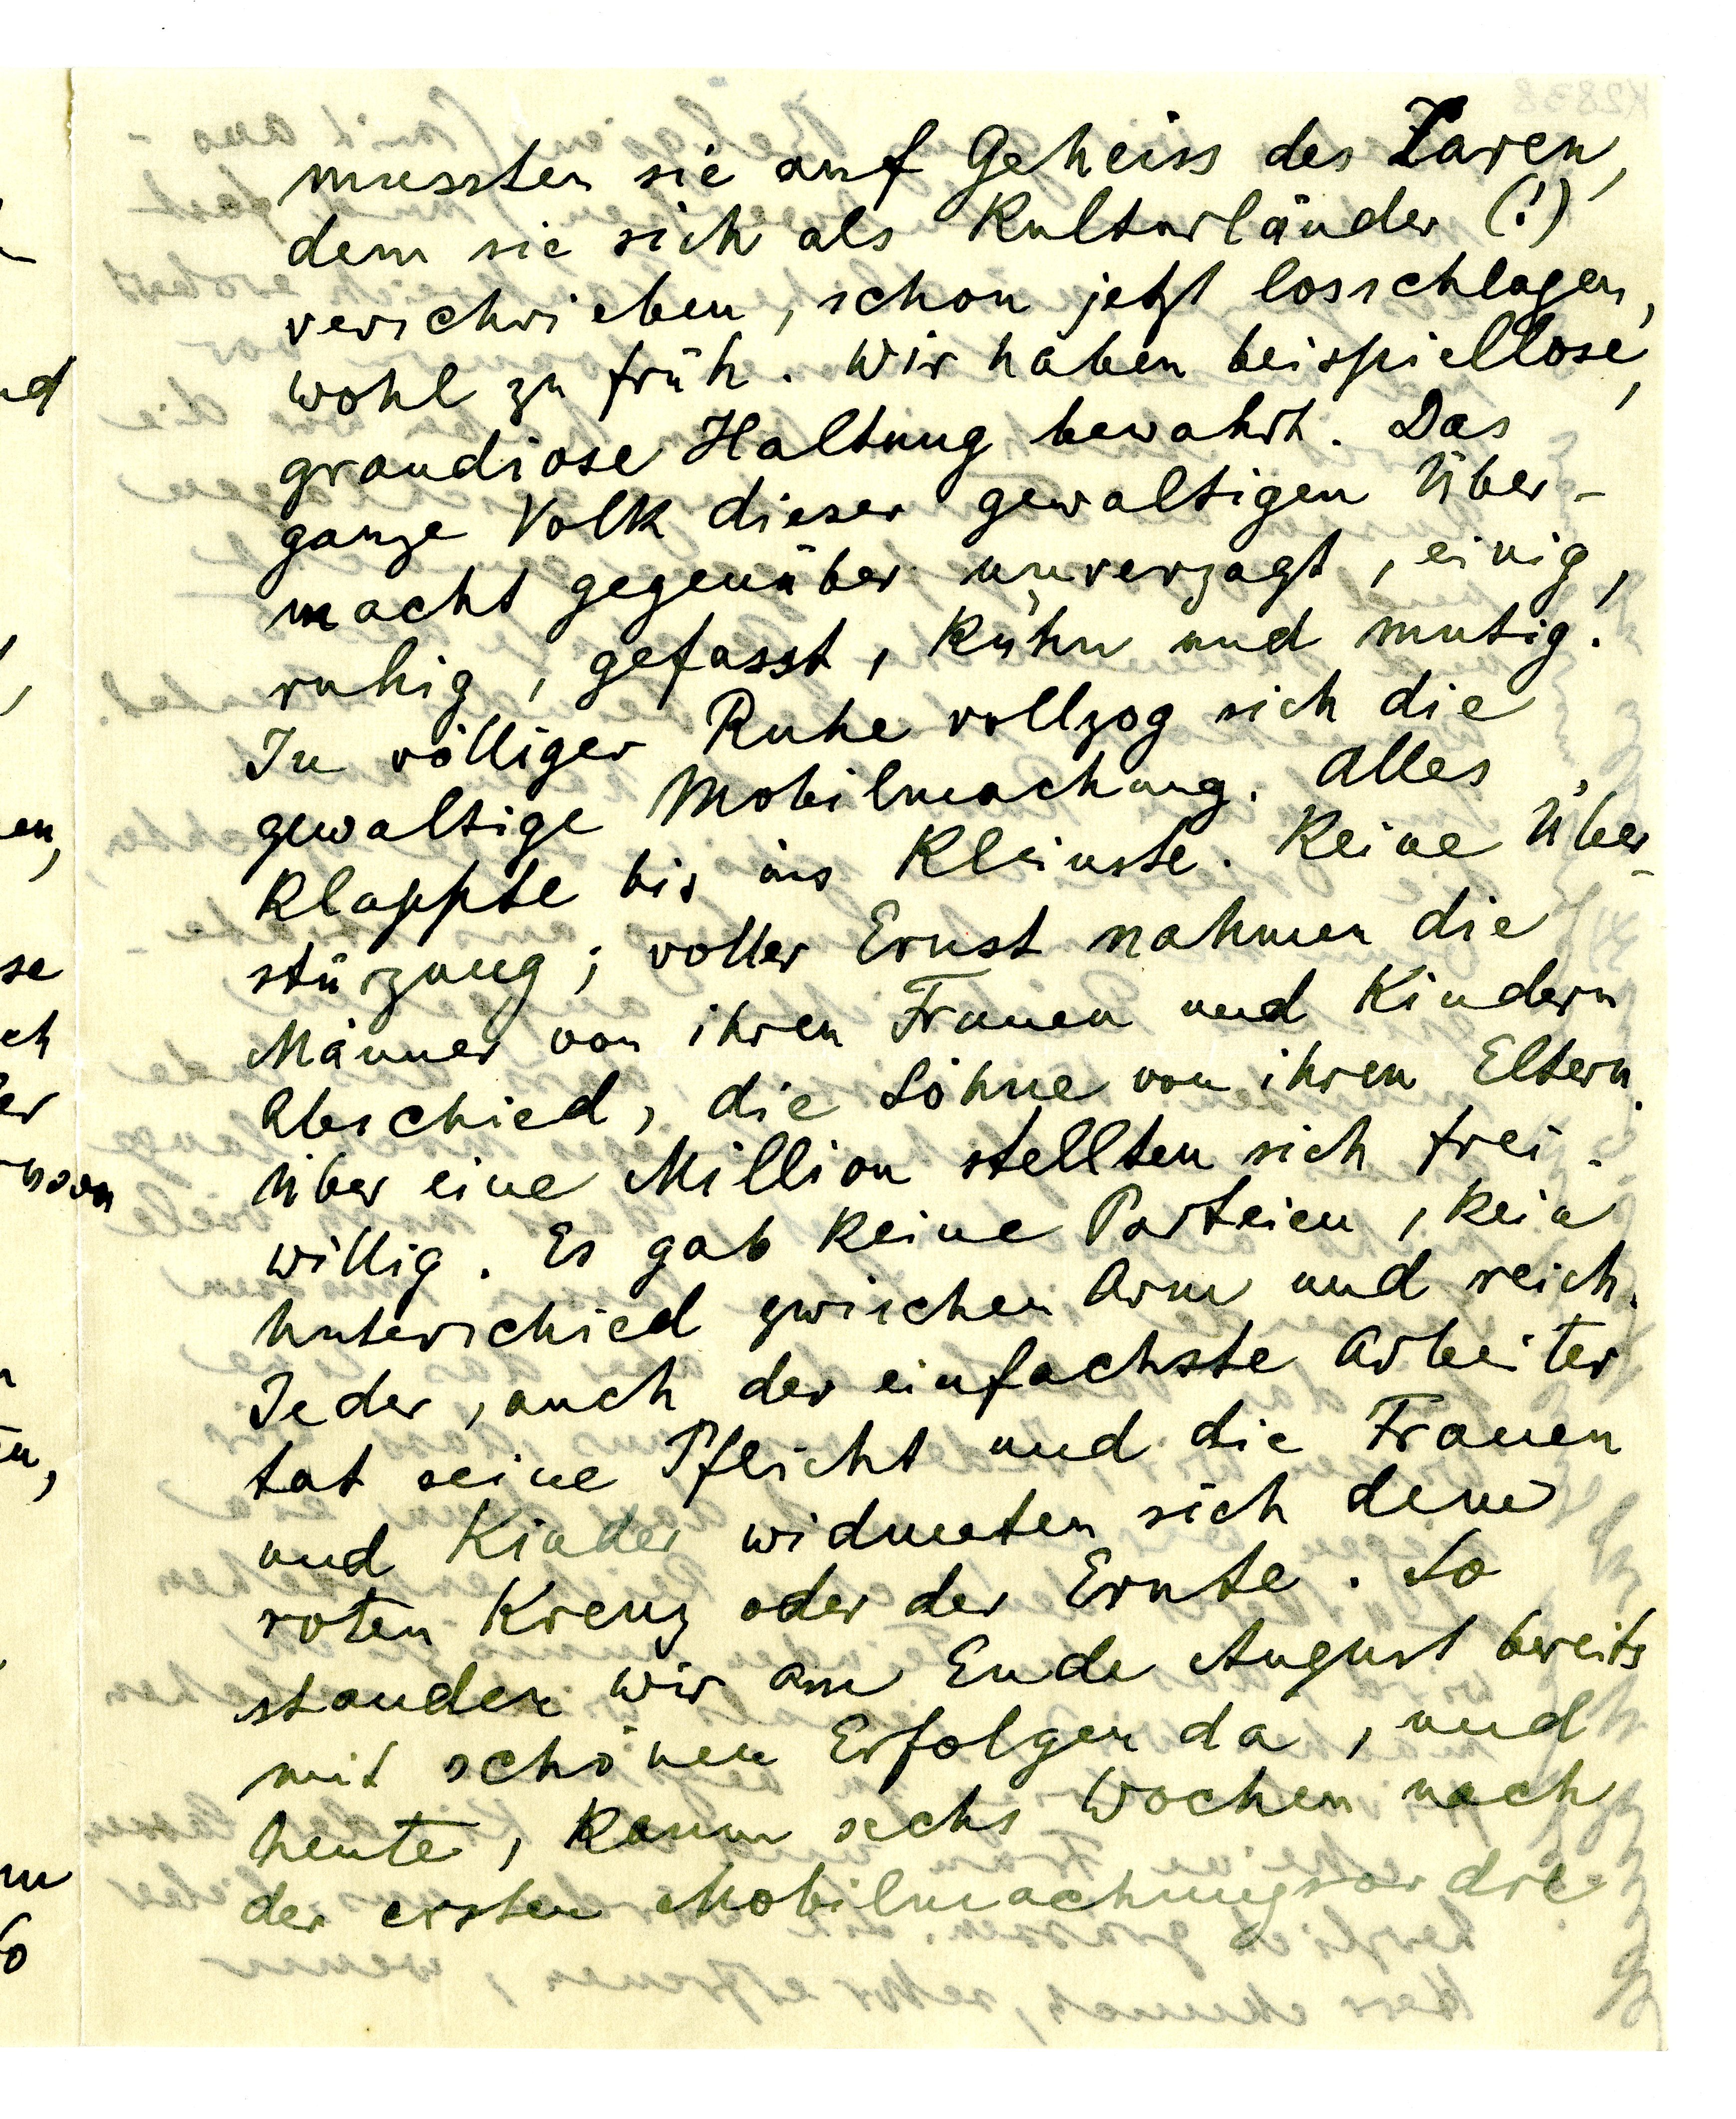 mussten sie auf Geheiss des Zaren,
dem sie sich als Kulturländer (!)
verschrieben, schon jetzt losschlagen,
wohl zu früh. Wir haben beispiellose,
grandiose Haltung bewahrt. Das
ganze Volk dieser gewaltigen Über-
macht gegenüber unverzagt, einig,
ruhig, gefasst, kühn und mutig.
In völliger Ruhe vollzog sich die
gewaltige Mobilmachung. Alles
klappte bis ins Kleinste. Keine Über-
stürzung; voller Ernst nahmen die
Männer von ihren Frauen und Kindern
Abschied, die Söhne von ihren Eltern.
Über eine Million stellten sich frei-
willig. Es gab keine Parteien, kein
Unterschied zwischen Arm und reich.
Jeder, auch der einfachste Arbeiter
tat seine Pflicht und die Frauen
und Kinder widmeten sich dem
roten Kreuz oder der Ernte. So
standen wir am Ende August bereits
mit schönen Erfolgen da, und
heute, kaum sechs Wochen nach
der ersten Mobilmachungsordre